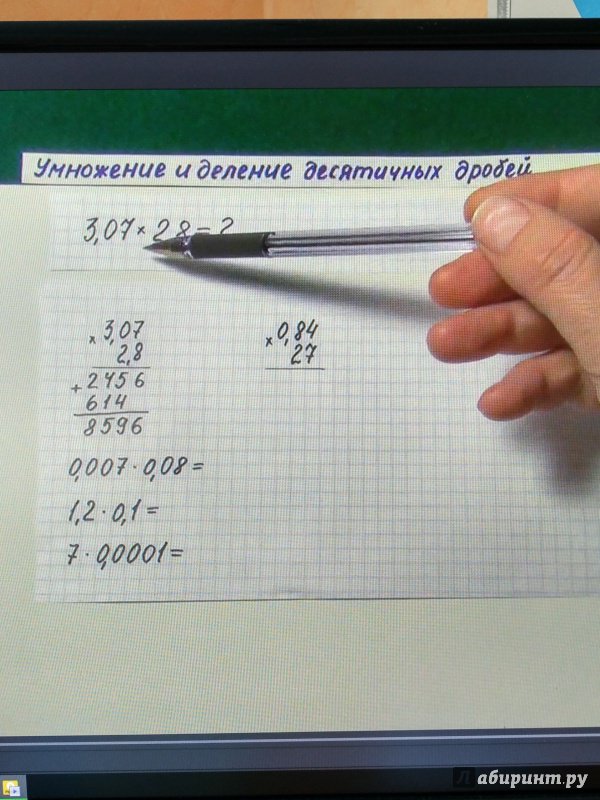 Умножение и деление десятичных дробей
3,07 × 2,8 = ?
× 3,07
2,8
+ 2456
614
8596
× 0,84
27
0,007 · 0,08 =
1,2 · 0,1 =
7 · 0,0001 =
Лабиринт.ру